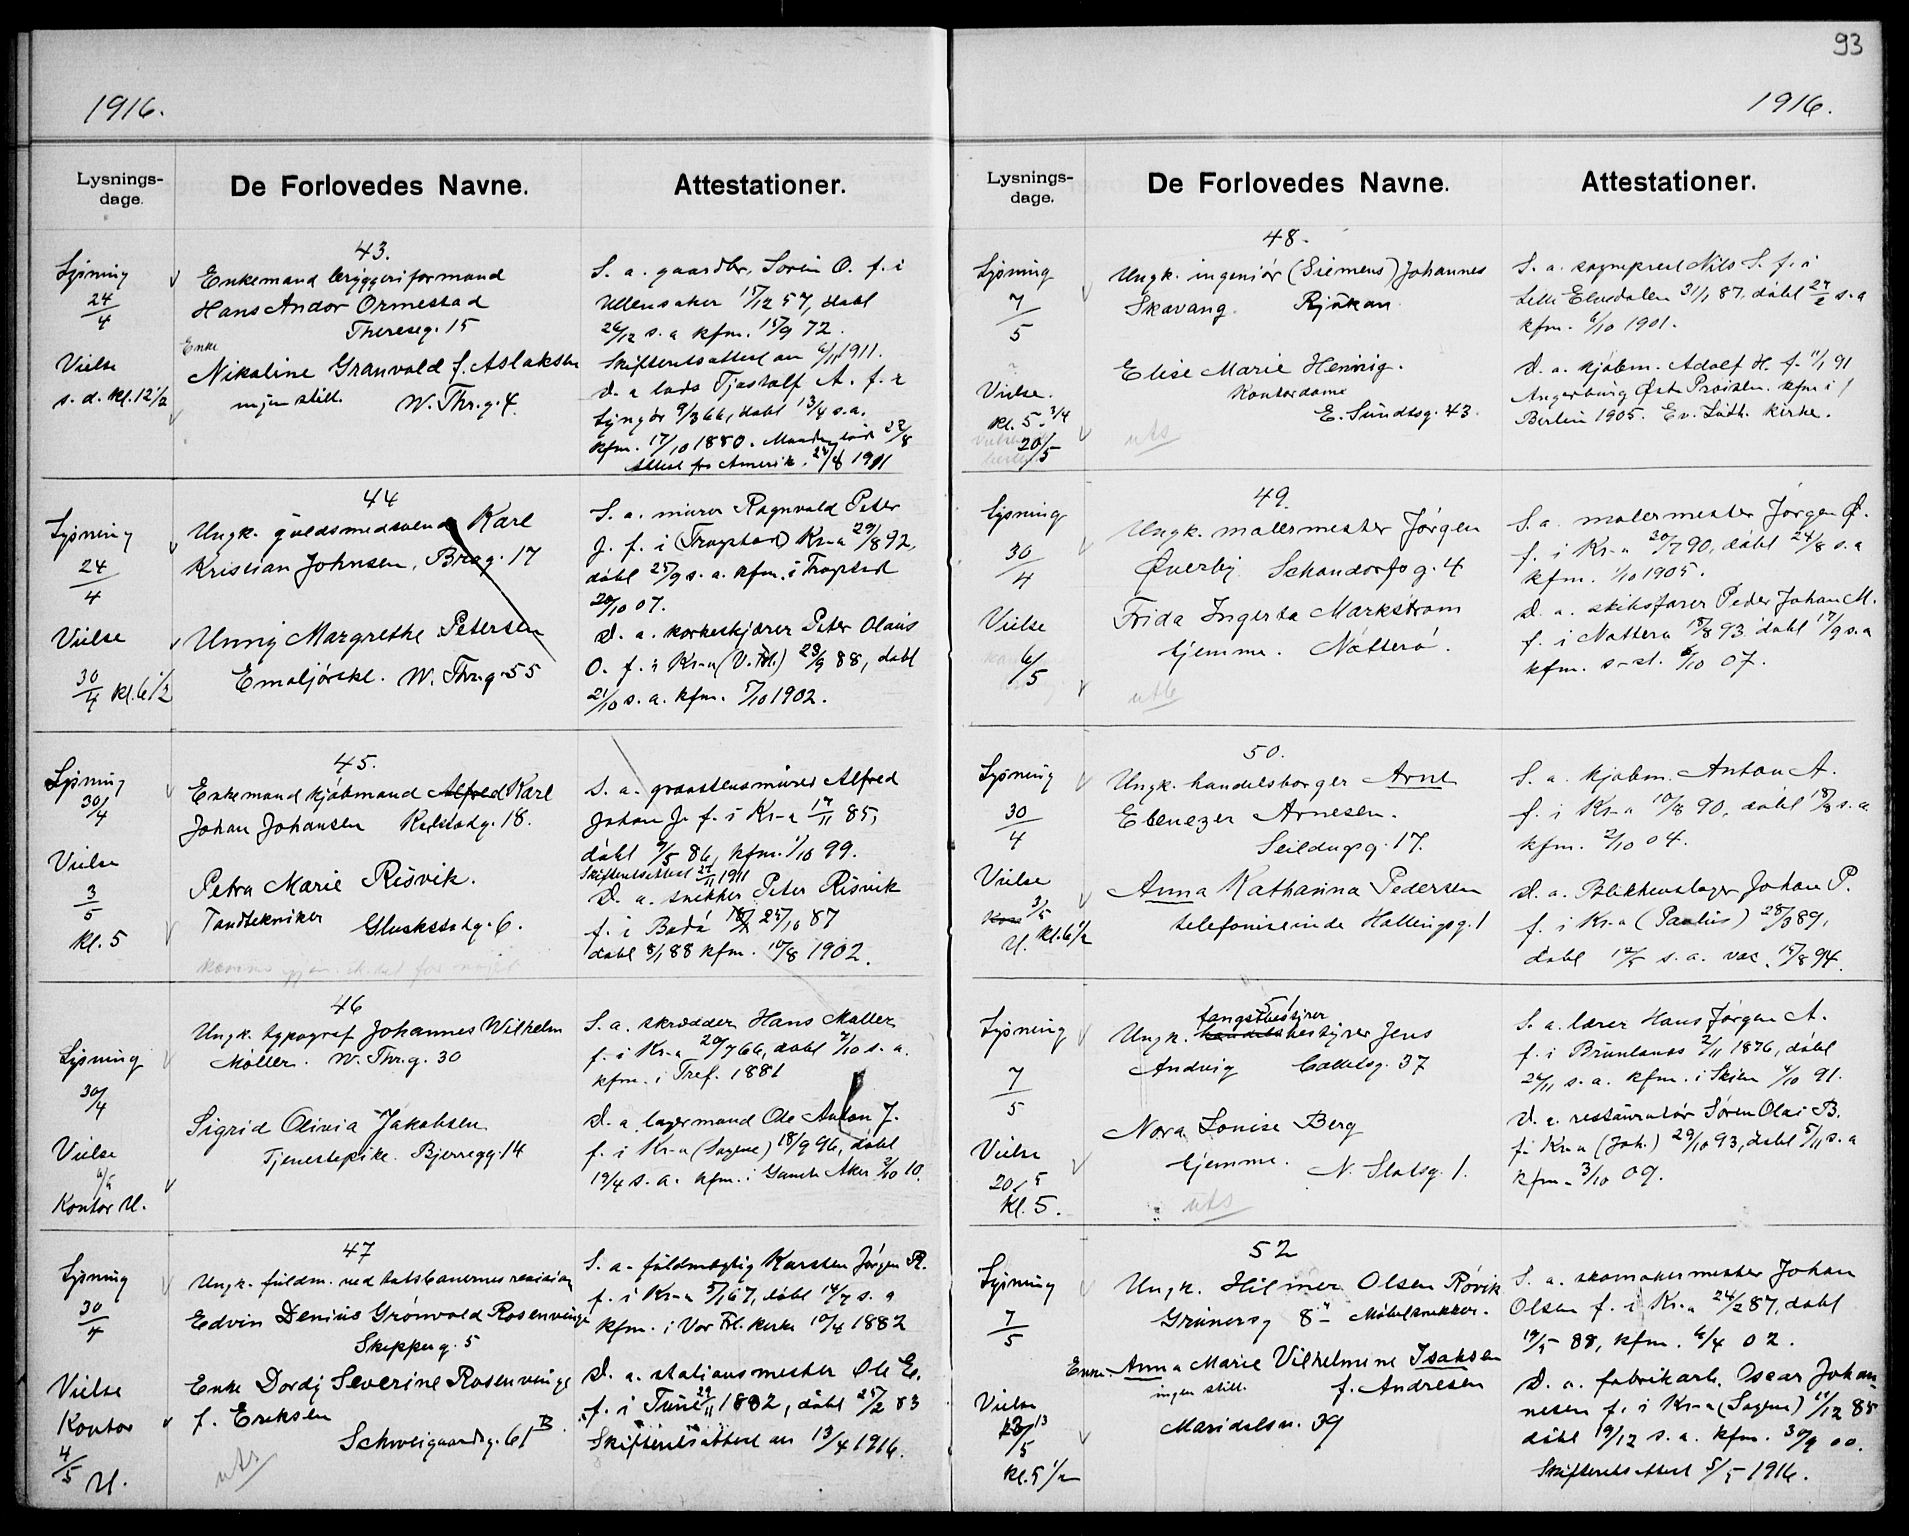 93
1916.
1916.
Lysnings-
dage.
De Forlovedes Navne.
Attestationer.
43.
Lysning
24/4
Vielse
s. d. kl. 12 1/2
Enkemand bryggeriformand
Hans Andor Ormestad
Thereseg. 15
Enke
Nikoline Granvold f. Aslaksen
ingen still. W. Thr. g. 4
S. a. gaardbr. Soren O. f. i
Ullensaker 15/12 57, døbt
26/12 s. a. kfm. 15/9 72.
Skifteretsattest av 6/11 1911.
D. a. lods Tjostolf A. f.
Lyngør 9/3 66, døbt 13/4 s. a.
kfm. 17/10 1880. Manden død 22/8
Attest fra Amerik. 1911
44
Lysning
24/4
Vielse
30/4 kl. 6 1/2
Ungk. guldsmedsvend Karl
Kristian Johnsen, Brog. 17
Unny Margrethe Petersen
Emaljørske. W. Thr. g. 55
S. a. murer Ragnvald Peter
J. f. i (Trogstad) Kr-a 29/8 92,
døbt 25/9 s. a. kfm. i Trogstad
20/10 07.
D. a. korkeskjærer Peter Olaus
O. f. i Kr-a (V. Frl.) 23/9 88, døbt
21/10 s. a. kfm. 5/10 1902.
45.
Lysning
30/4
Vielse
3/5
kl. 5
Enkemand kjøbmand Alfred Karl
Johan Johansen 18.
Petra Marie Risvik.
Tandtekniker 6.
S. a. graastensmurer Alfred
Johan J. f. i Kr-a 17/11 85,
døbt 9/5 86, kfm. 1/10 99.
Skifteretsattest 1911
D. a. snekker Peter Risvik
f. i Bodø 25/10 87
døbt 8/1 88 kfm. 10/8 1902.
46
Lysning
30/4
Vielse
6/5
Kontor U.
Ungk. typograf Johannes Wilhelm
Møller. W. Thr. g. 30
Sigrid Olivia Jakobsen
Tjenestepike. Bjerregg. 14
S. a. skrædder Hans Møller
f. i Kr-a 20/7 66, døbt 7/10 s. a.
kfm. i Tref. 1881
D. a. lagermand Ole Anton J.
f. i Kr-a (Sagene) 18/9 96, døbt
19/4 s. a. kfm. i Gamle Aker 2/10 10.
47
Lysning
30/4
Vielse
Kontor
4/5 U.
Ungk. fuldm. ved statsbanernes revision
Edvin Denius Grønvold Rosenvinge
Skipperg. 5
Enke Dordj Severine Rosenvinge
f. Eriksen
Schweigaardsg. 61 B
uts
S. a. fuldmægtig Karsten Jørgen R.
f. i Kr-a 5/1 67, døbt 14/7 s. a
kfm. i Vor Frl. kirke 10/4 1882
D. a. stationsmester Ole E.
f. i Tune 29/11 1882, døbt 25/2 83
Skifteretsattest av 13/4 1916.
Lysnings-
dage.
De Forlovedes Navne.
Attestationer.
48.
Lysning
7/5
Vielse.
kl. 5 3/4
20/5
Ungk. ingeniør (Siemens) Johannes
Skavang. Rjukan
Elise Marie Hennig.
Kontordame
E. Sundtsg. 43.
uts
S. a. sogneprest Nils S. f. i
Lille Elvedalen 31/1 87, døbt 27/2 s. a
kfm. 6/10 1901.
D. a. kjøbm. Adolf H. f. 11/1 91
Angerburg Øst Prøisen. kfm i
Berlin 1905. Ev. Luth. kirke.
49.
Lysning
30/4
Vielse
6/5
Ungk. malermester Jørgen
Øverby Schandorfsg. 4
Frida Ingerta Markstrøm
hjemme. Nøtterø.
uts
S. a. malermester Jørgen Ø.
f. i Kr-a 30/7 90, døbt 24/8 s. a
kfm. 1/10 1905.
D. a. skibsfører Peder Johan M.
f. i Nøtterø 15/8 93 døbt 17/9 s. a
kfm. s-st. 6/10 07.
50.
Lysning
30/4
Vielse
3/5
U. kl. 6 1/2
Ungk. handelsborger Arne
Ebenezer Arnesen.
Seildugsg. 17.
Anna Katharina Pedersen
telefoniserinde Hallingsg. 1
S. a. kjøbm. Anton A.
f. i Kr-a 10/8 90, døbt 18/8 s. a
kfm. 2/10 04.
D. a. Blikkenslager Johan P.
f. i Kr-a (Paulus) 28/3 89,
døbt 12/5 s. a. vac. 15/8 94.
51
Lysning
7/5
Vielse
20/5
Kl. 5.
fangstbestyrer
Ungk. handelsbestyrer Jens
Andvig Colletsg. 37
Nora Lovise Berg
hjemme. N. Slotsg. 1.
uts
S. a. lærer Hans Jørgen A.
f. i Brunlanes 2/11 1876, døbt
26/11 s. a. kfm. i Skien 4/10 91.
D. a. restauratør Søren Olai B.
f. Kr-a (Joh.) 29/10 93, døbt 5/11 s. a
kfm. 3/10 09.
52
Lysning
7/5
Vielse
13/5
kl. 5 1/2
Ungk. Hilmer Olsen Røvik
Grünersg 8 Møbelsnekker.
Enke. Anna Marie Vilhelmine Isaksen
ingen still. f. Andresen
Maridalsv. 39
S. a. skomakermester Johan
Olsen f. i Kr-a 24/2 87, døbt
19/5 88, kfm. 6/4 02.
D. a. fabrikarb. Oscar Johan-
nesen f. i Kr-a (Sagene) 11/12 85
døbt 19/12 s. a. kfm. 30/9 00.
Skifteretsattest 5/5 1916.